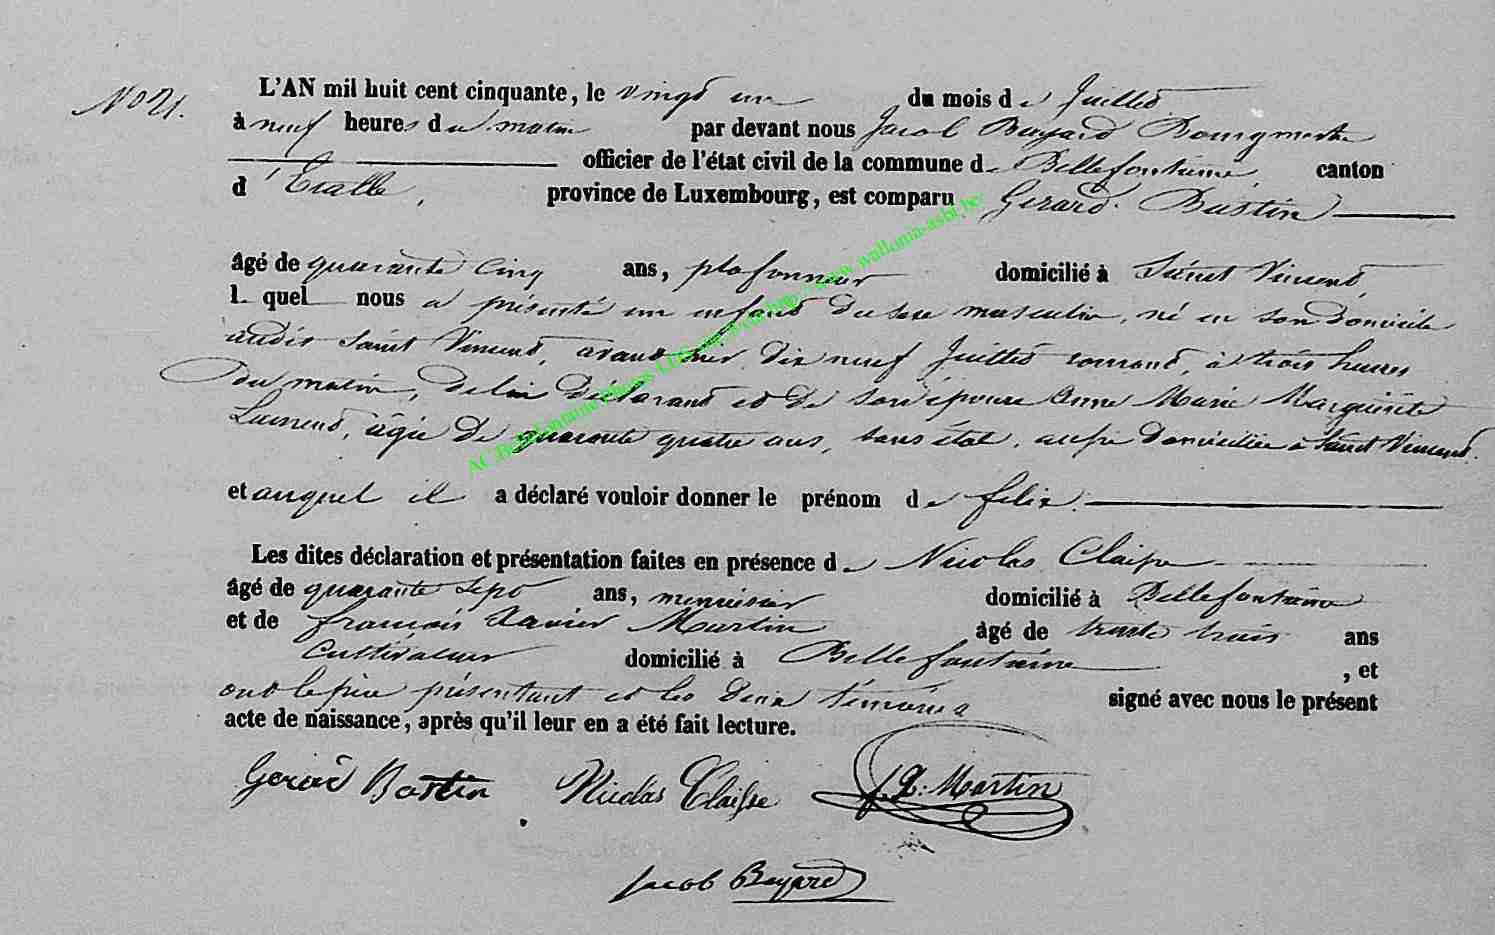 No 21.
L'AN mil huit cent cinquante, le vingt un du mois de Juillet
à neuf heures du matin par devant nous Jacob Bayard Bourgmestre
officier de l'état civil de la commune de Bellefontaine, canton
d'Etalle, province de Luxembourg, est comparu Gerard Bastin
âgé de quarante cinq ans, plafonneur domicilié à Saint Vincent,
lequel nous a présenté un enfant du sexe masculin, né en son domicile
audit Saint Vincent, avant hier dix neuf Juillet courant, à trois heures
du matin, de lui déclarant et de son épouse Anne Marie Marguerite
Laurent, âgée de quarante quatre ans, sans état, aussi domiciliée à Saint Vincent.
et auquel il a déclaré vouloir donner le prénom de felix.
Les dites déclaration et présentation faites en présence de Nicolas Claisse
âgé de quarante sept ans, menuisier domicilié à Bellefontaine
et de françois Xavier Martin âgé de trente trois ans
Cultivateur domicilié à Bellefontaine, et
ont le père présentant et les deux témoins signé avec nous le présent
acte de naissance, après qu'il leur en a été fait lecture.
Gerard Bastin Nicolas Claisse Martin
Jacob Bayard